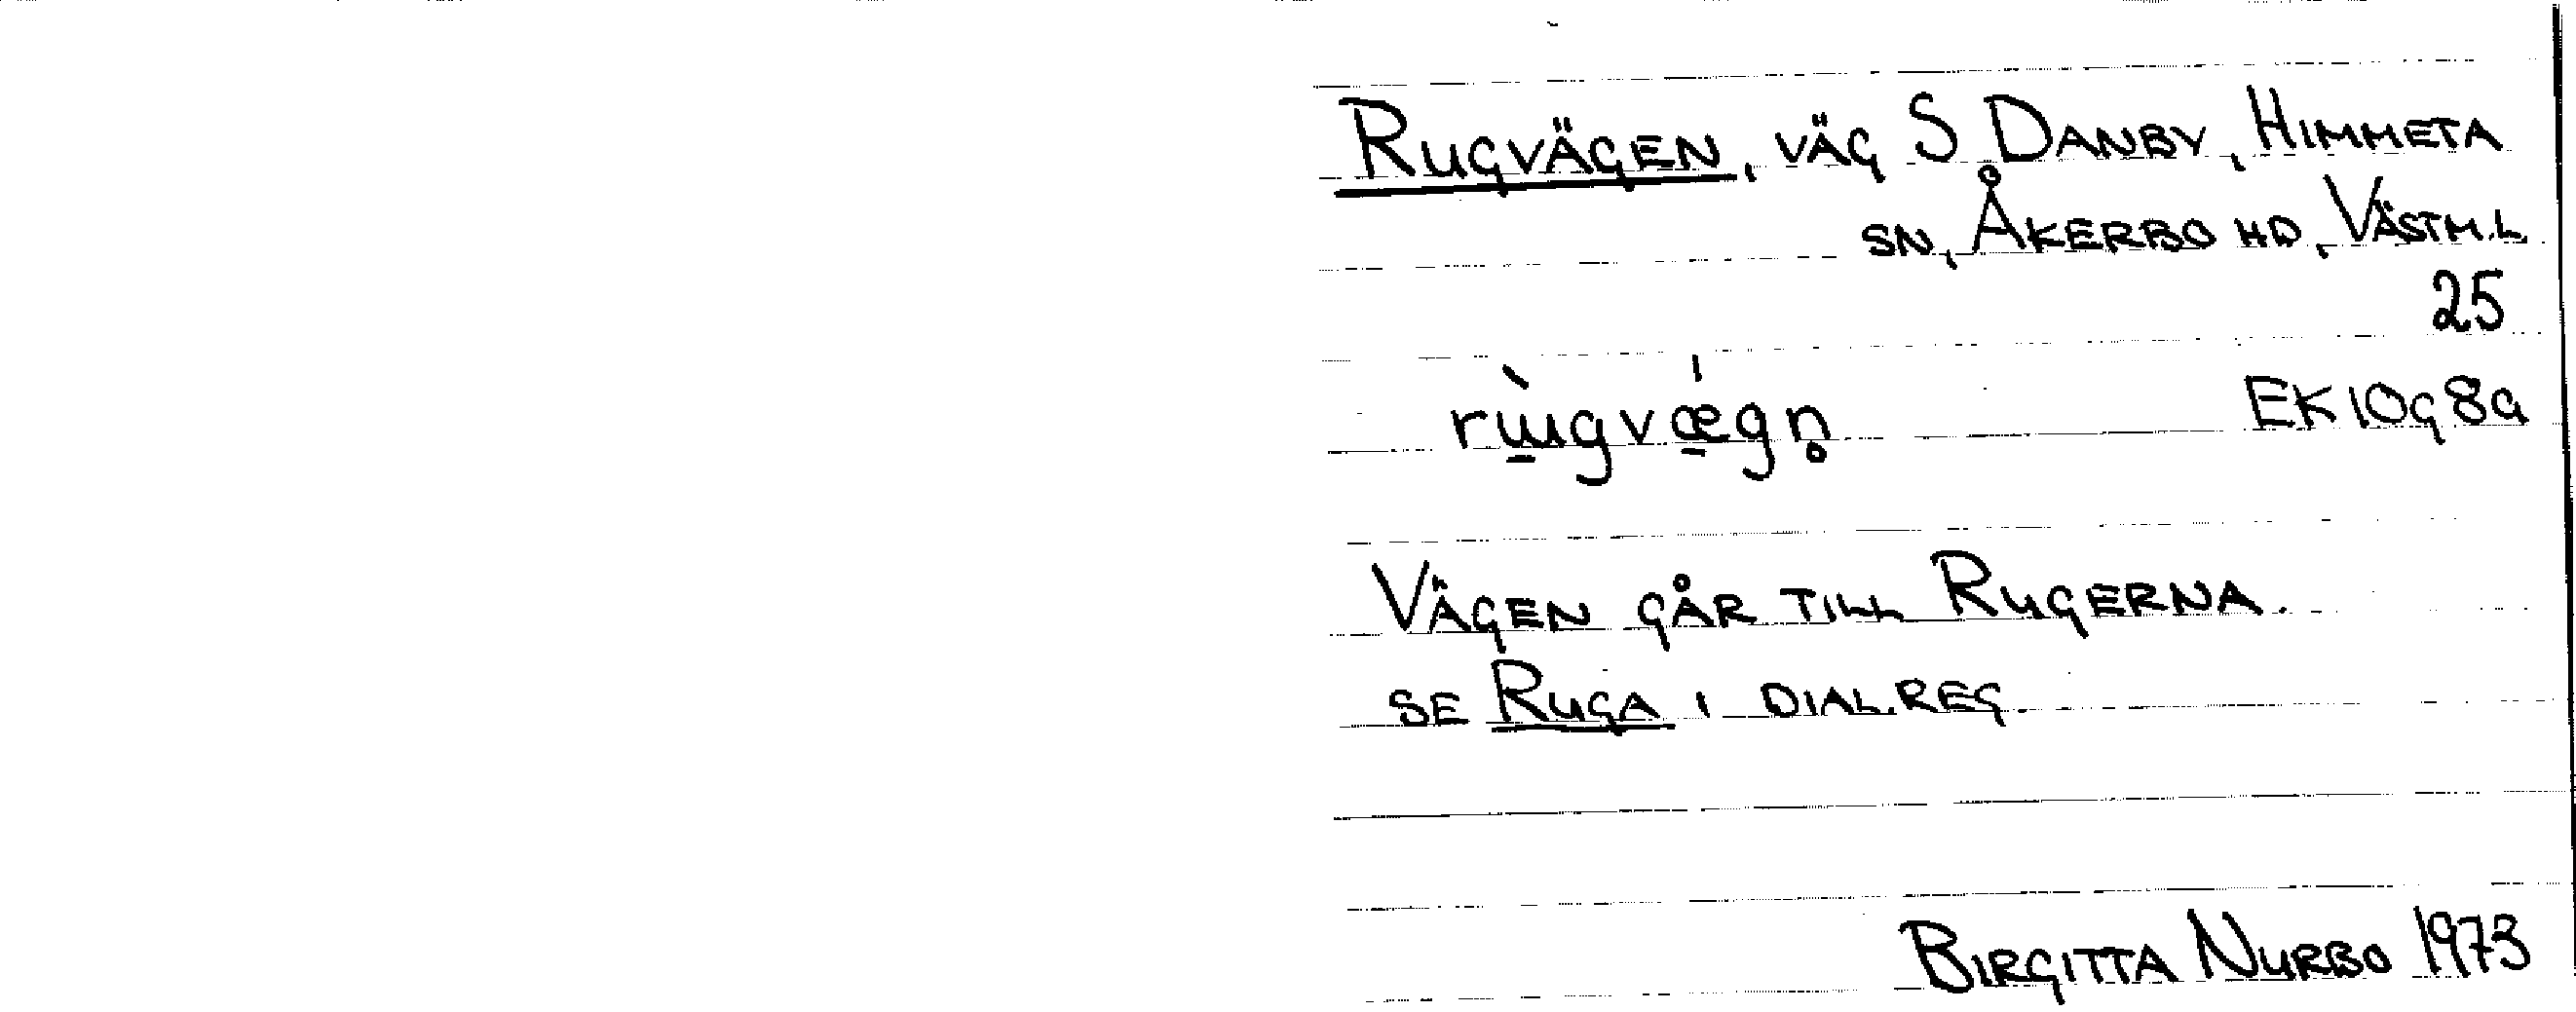 RUGVÄGEN, VÄG S DANBY, HIMMETA
SN, ÅKERBO HD, VÄSTM.L.
25
rɯ̠̀gvǽ̠gn̥ EK10g8a
VÄGEN GÅR TILL RUGERNA.
SE RUGA I DIAL.REG.
BIRGITTA NURBO 1973